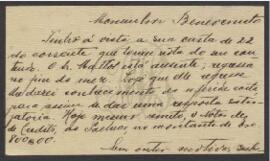 Monsenhor Benevenuto
Tenho à vista a sua carta de 22
do corrente que tomei nota do seu con
teudo. O Sr. Mattos está ausente; regressa
no fim do mez. Logo que elle regresse
dar conhecimento da referida carta
para assim a dar uma resposta satis
fatoria. Hoje mesmo remetto, o Notas de
de Credito, do no montante de
800$00.
Sem outro motivo,